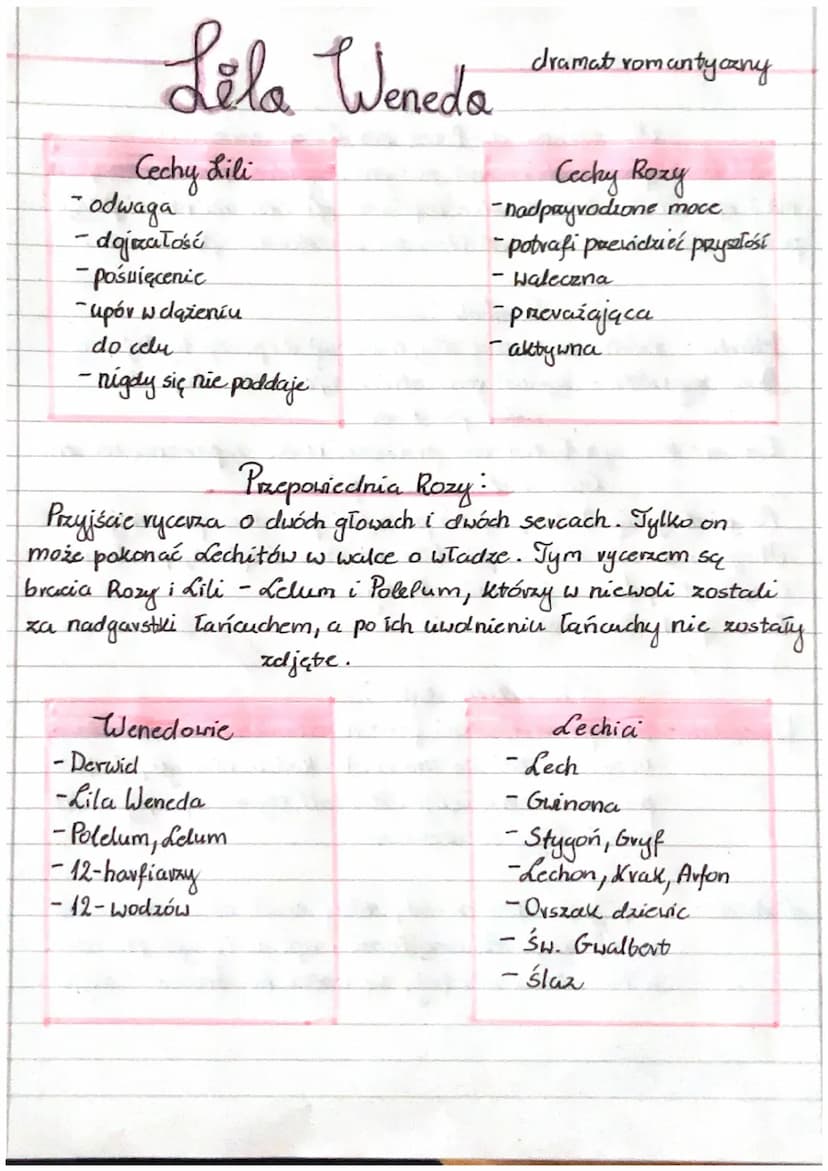 Lila Weneda
dramat romantyczny
Cechy Lili
- odwaga
- dojrzałość
- poświęcenie
- upór w dążeniu
do celu
- nigdy się nie poddaje
Cechy Rozy
- nadprzyrodzone moce
- potrafi przewidzieć przyszłość
- waleczna
- przeważająca
- aktywna
Przepowiednia Rozy:
Przyjście rycerza o dwóch głowach i dwóch sercach. Tylko on
może pokonać Lechitów w walce o władze. Tym rycerzem są
bracia Rozy i Lili - Lelum i Polelum, którzy w niewoli zostali
za nadgarstki łańcuchem, a po ich uwolnieniu łańcuchy nie zostały
zdjęte.
Wenedowie
- Derwid
- Lila Weneda
- Polelum, Lelum
- 12-harfiarzy
- 12-wodzów
Lechici
- Lech
- Gwinona
- Stygoń, Gryf
- Lechon, Krak, Arfon
- Orszak dziewic
- Św. Gwalbert
- Ślaz